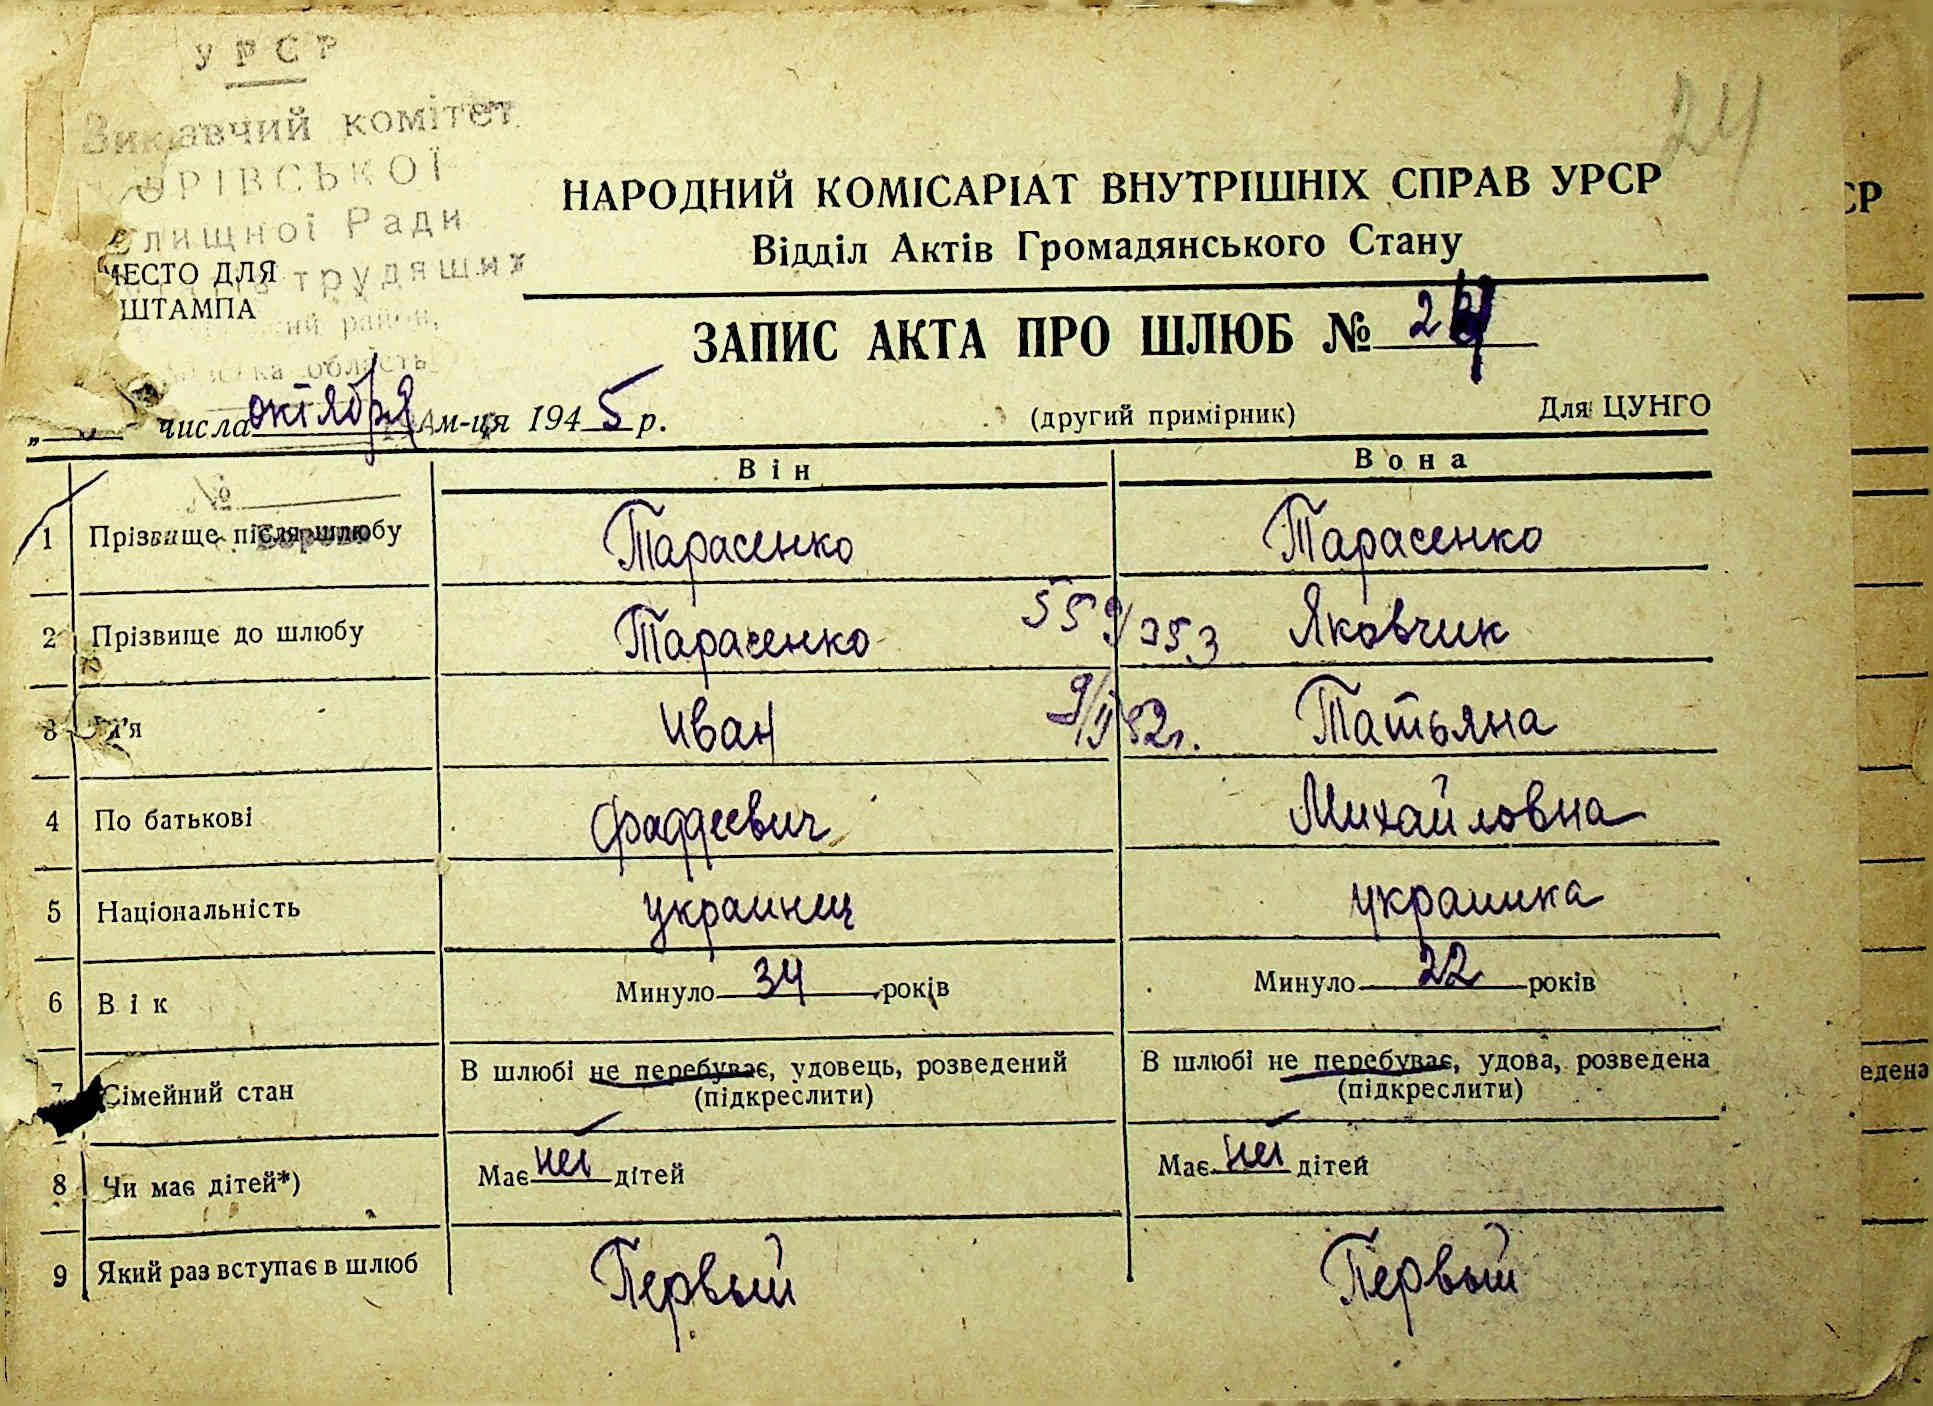 УРСР
Виконавчий комітет
Ради
трудящих
МЕСТО ДЛЯ
ШТАМПА
район,
область
24
НАРОДНИЙ КОМІСАРІАТ ВНУТРІШНІХ СПРАВ УРСР
Відділ Актів Громадянського Стану
ЗАПИС АКТА ПРО ШЛЮБ №
числа октября м-ця 1945 р.
(другий примірник)
Для ЦУНГО
№
Він Вона
1 Прізвище після шлюбу Тарасенко Тарасенко
2 Прізвище до шлюбу Тарасенко Яковчик
3 Ім'я Иван Татьяна
4 По батькові Фаддеевич Михайловна
5 Національність украинец украинка
6 Вік Минуло 34 років Минуло 22 років
7 Сімейний стан В шлюбі не перебуває, удовець, розведений В шлюбі не перебуває, удова, розведена
(підкреслити) (підкреслити)
8 Чи має дітей*) Має нет дітей Має нет дітей
9 Який раз вступає в шлюб Первый Первый
СР
едена